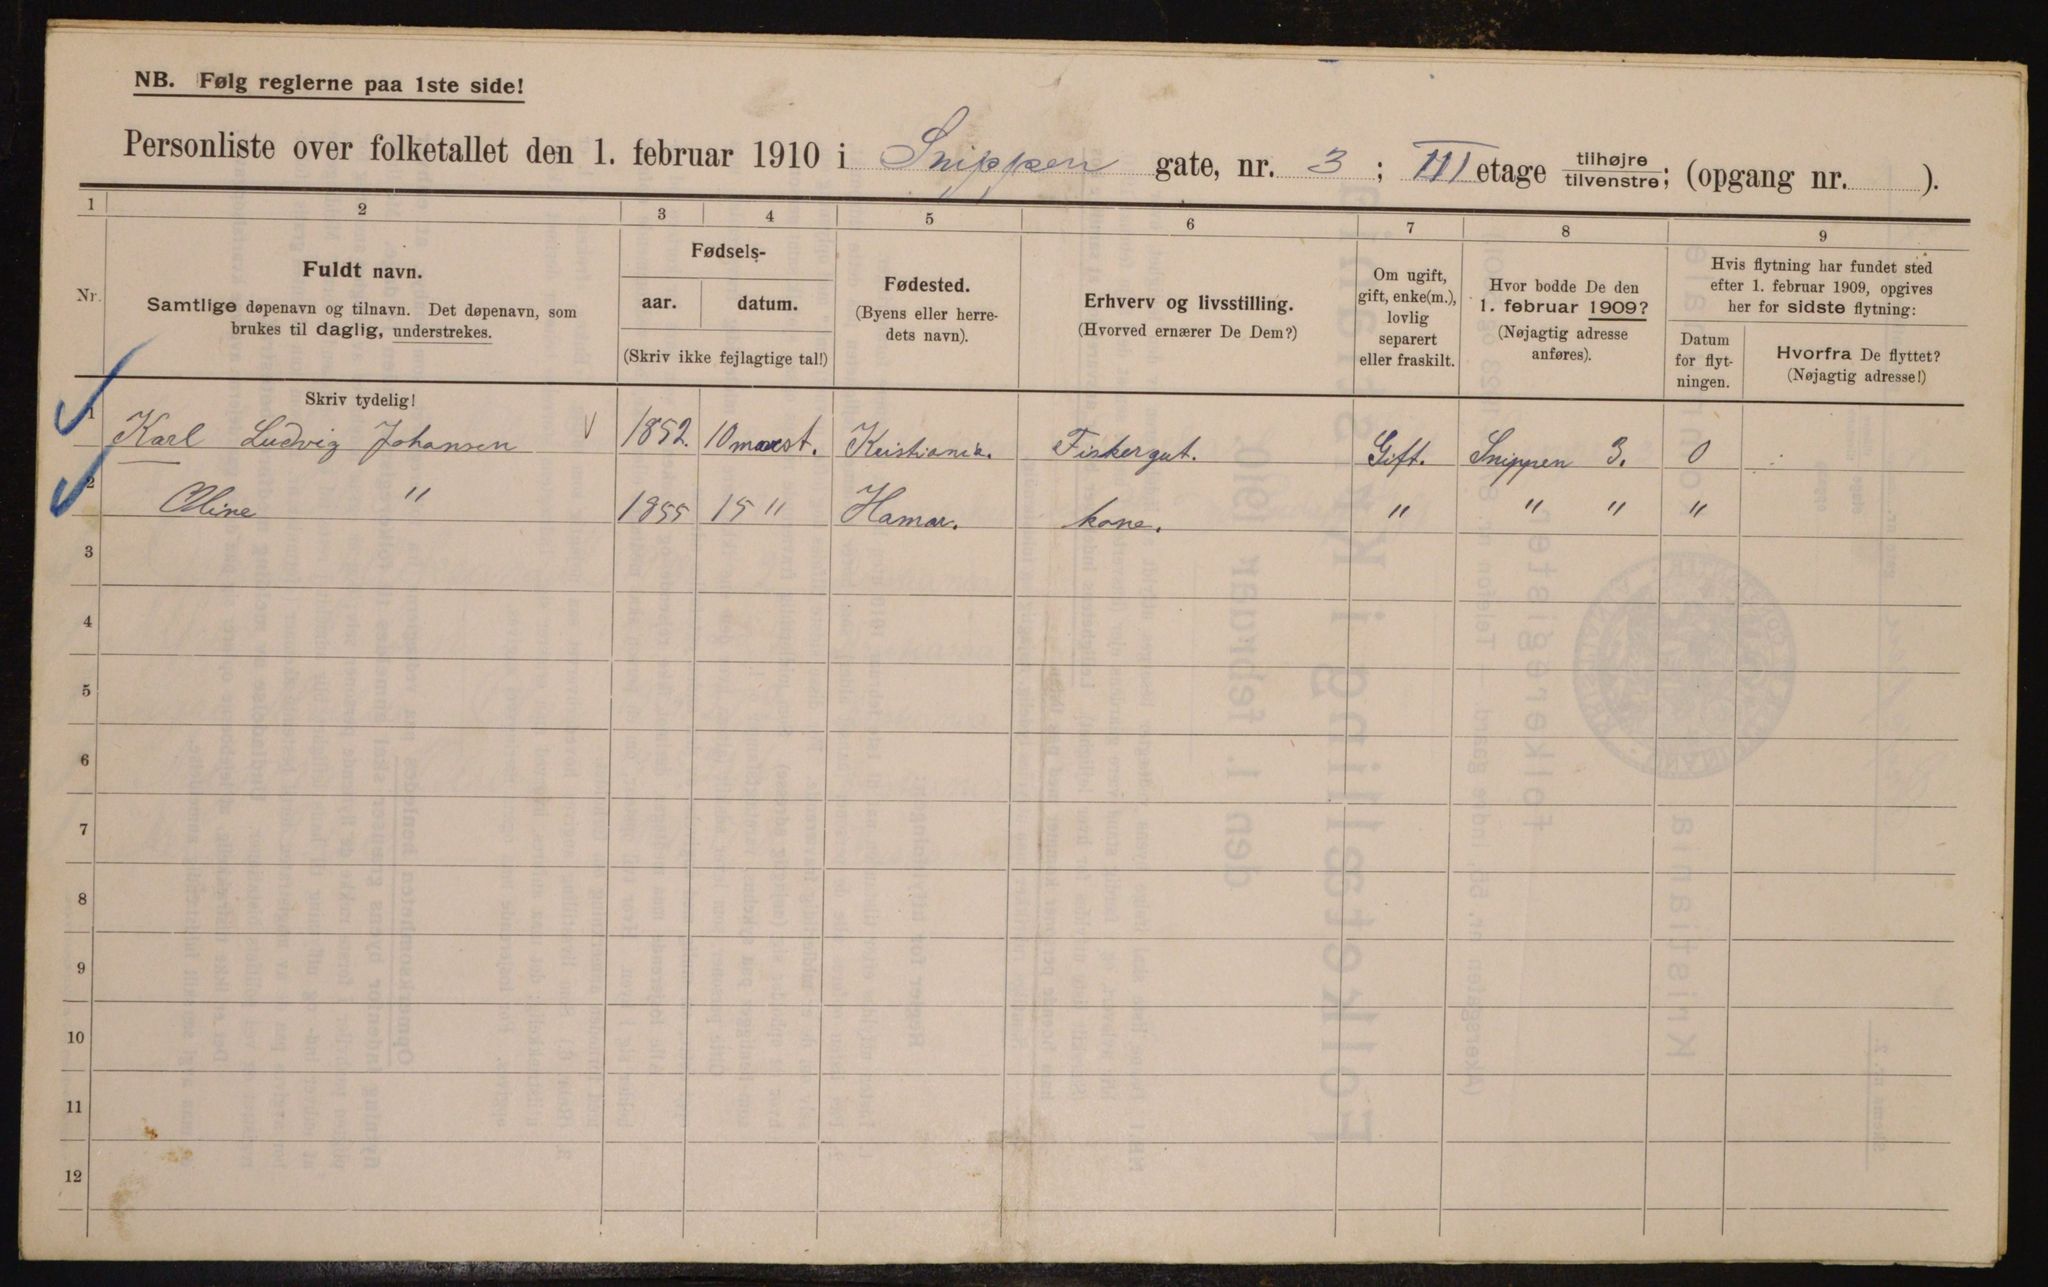 NB. Følg reglerne paa 1ste side!
Personliste over folketallet den 1. februar 1910 i Snippen gate, nr. 3; III etage tilhøjre/tilvenstre; (opgang nr. ).
1 2 3 4 5 6 7 8 9
Nr.
Fuldt navn.
Samtlige døpenavn og tilnavn. Det døpenavn, som
brukes til daglig, understrekes.
Skriv tydelig!
Fødsels-
aar. datum.
(Skriv ikke fejlagtige tal!)
Fødested.
(Byens eller herre-
dets navn).
Erhverv og livsstilling.
(Hvorved ernærer De Dem?)
Om ugift,
gift, enke(m.),
lovlig
separert
eller fraskilt.
Hvor bodde De den
1. februar 1909?
(Nøjagtig adresse
anføres).
Hvis flytning har fundet sted
efter 1. februar 1909, opgives
her for sidste flytning:
Datum
for flyt-
ningen.
Hvorfra De flyttet?
(Nøjagtig adresse!)
1 Karl Ludvig Johansen 1852. 10 Kristiania. Fiskergut. Gift. Snippen 3. 0
2 Oline " 1855 15 " Hamar. kone. " " " "
3
4
5
6
7
8
9
10
11
12